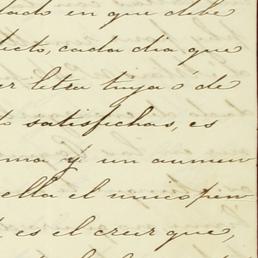 tado en que debe
ecto, cada dia que
er letra tuya ó de
satisfechas, es
ma y un aumen
ella el unico pen
es el creer que,